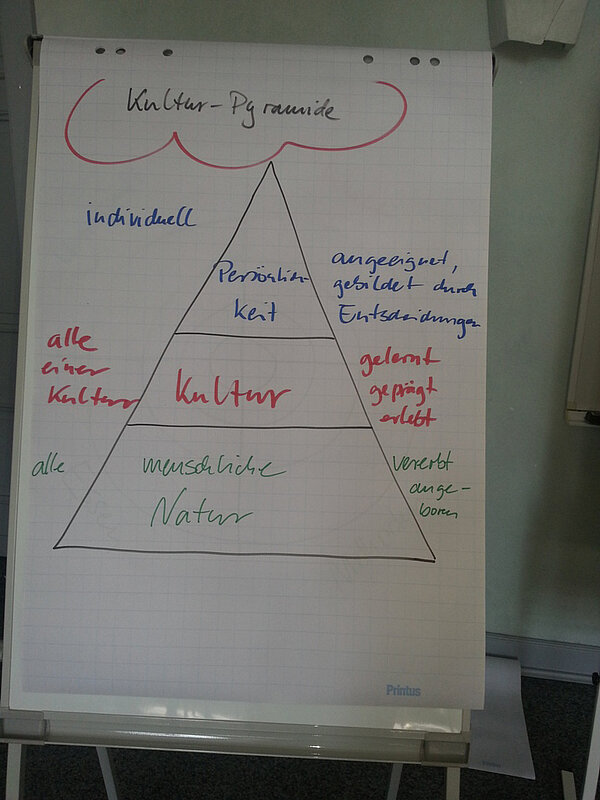 Kultur-Pyramide
individuell
Persönlich-
keit
angeeignet,
gebildet durch
Entscheidungen
alle
einer
Kultur
Kultur
gelernt
geprägt
erlebt
alle
menschliche
Natur
vererbt
ange-
boren
Printus